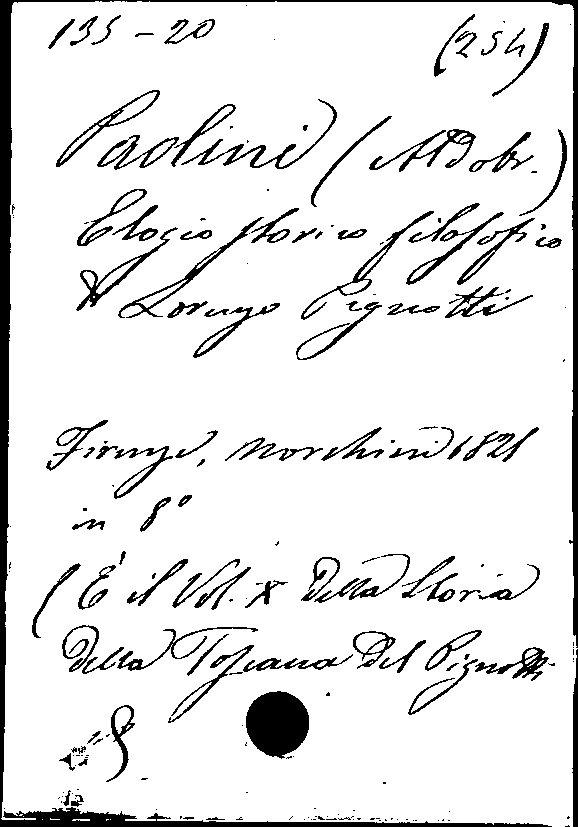 135-20 (254)
Paolini (Aldobr.)
Elogio storico filosofico
di Lorenzo Pignotti
Firenze, Marchini 1821
in 8°
(È il Vol. X della Storia
della Toscana del Pignotti